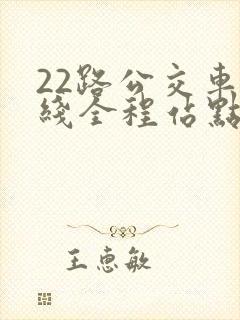 22路公交車
綫全程佔點
王惠敏